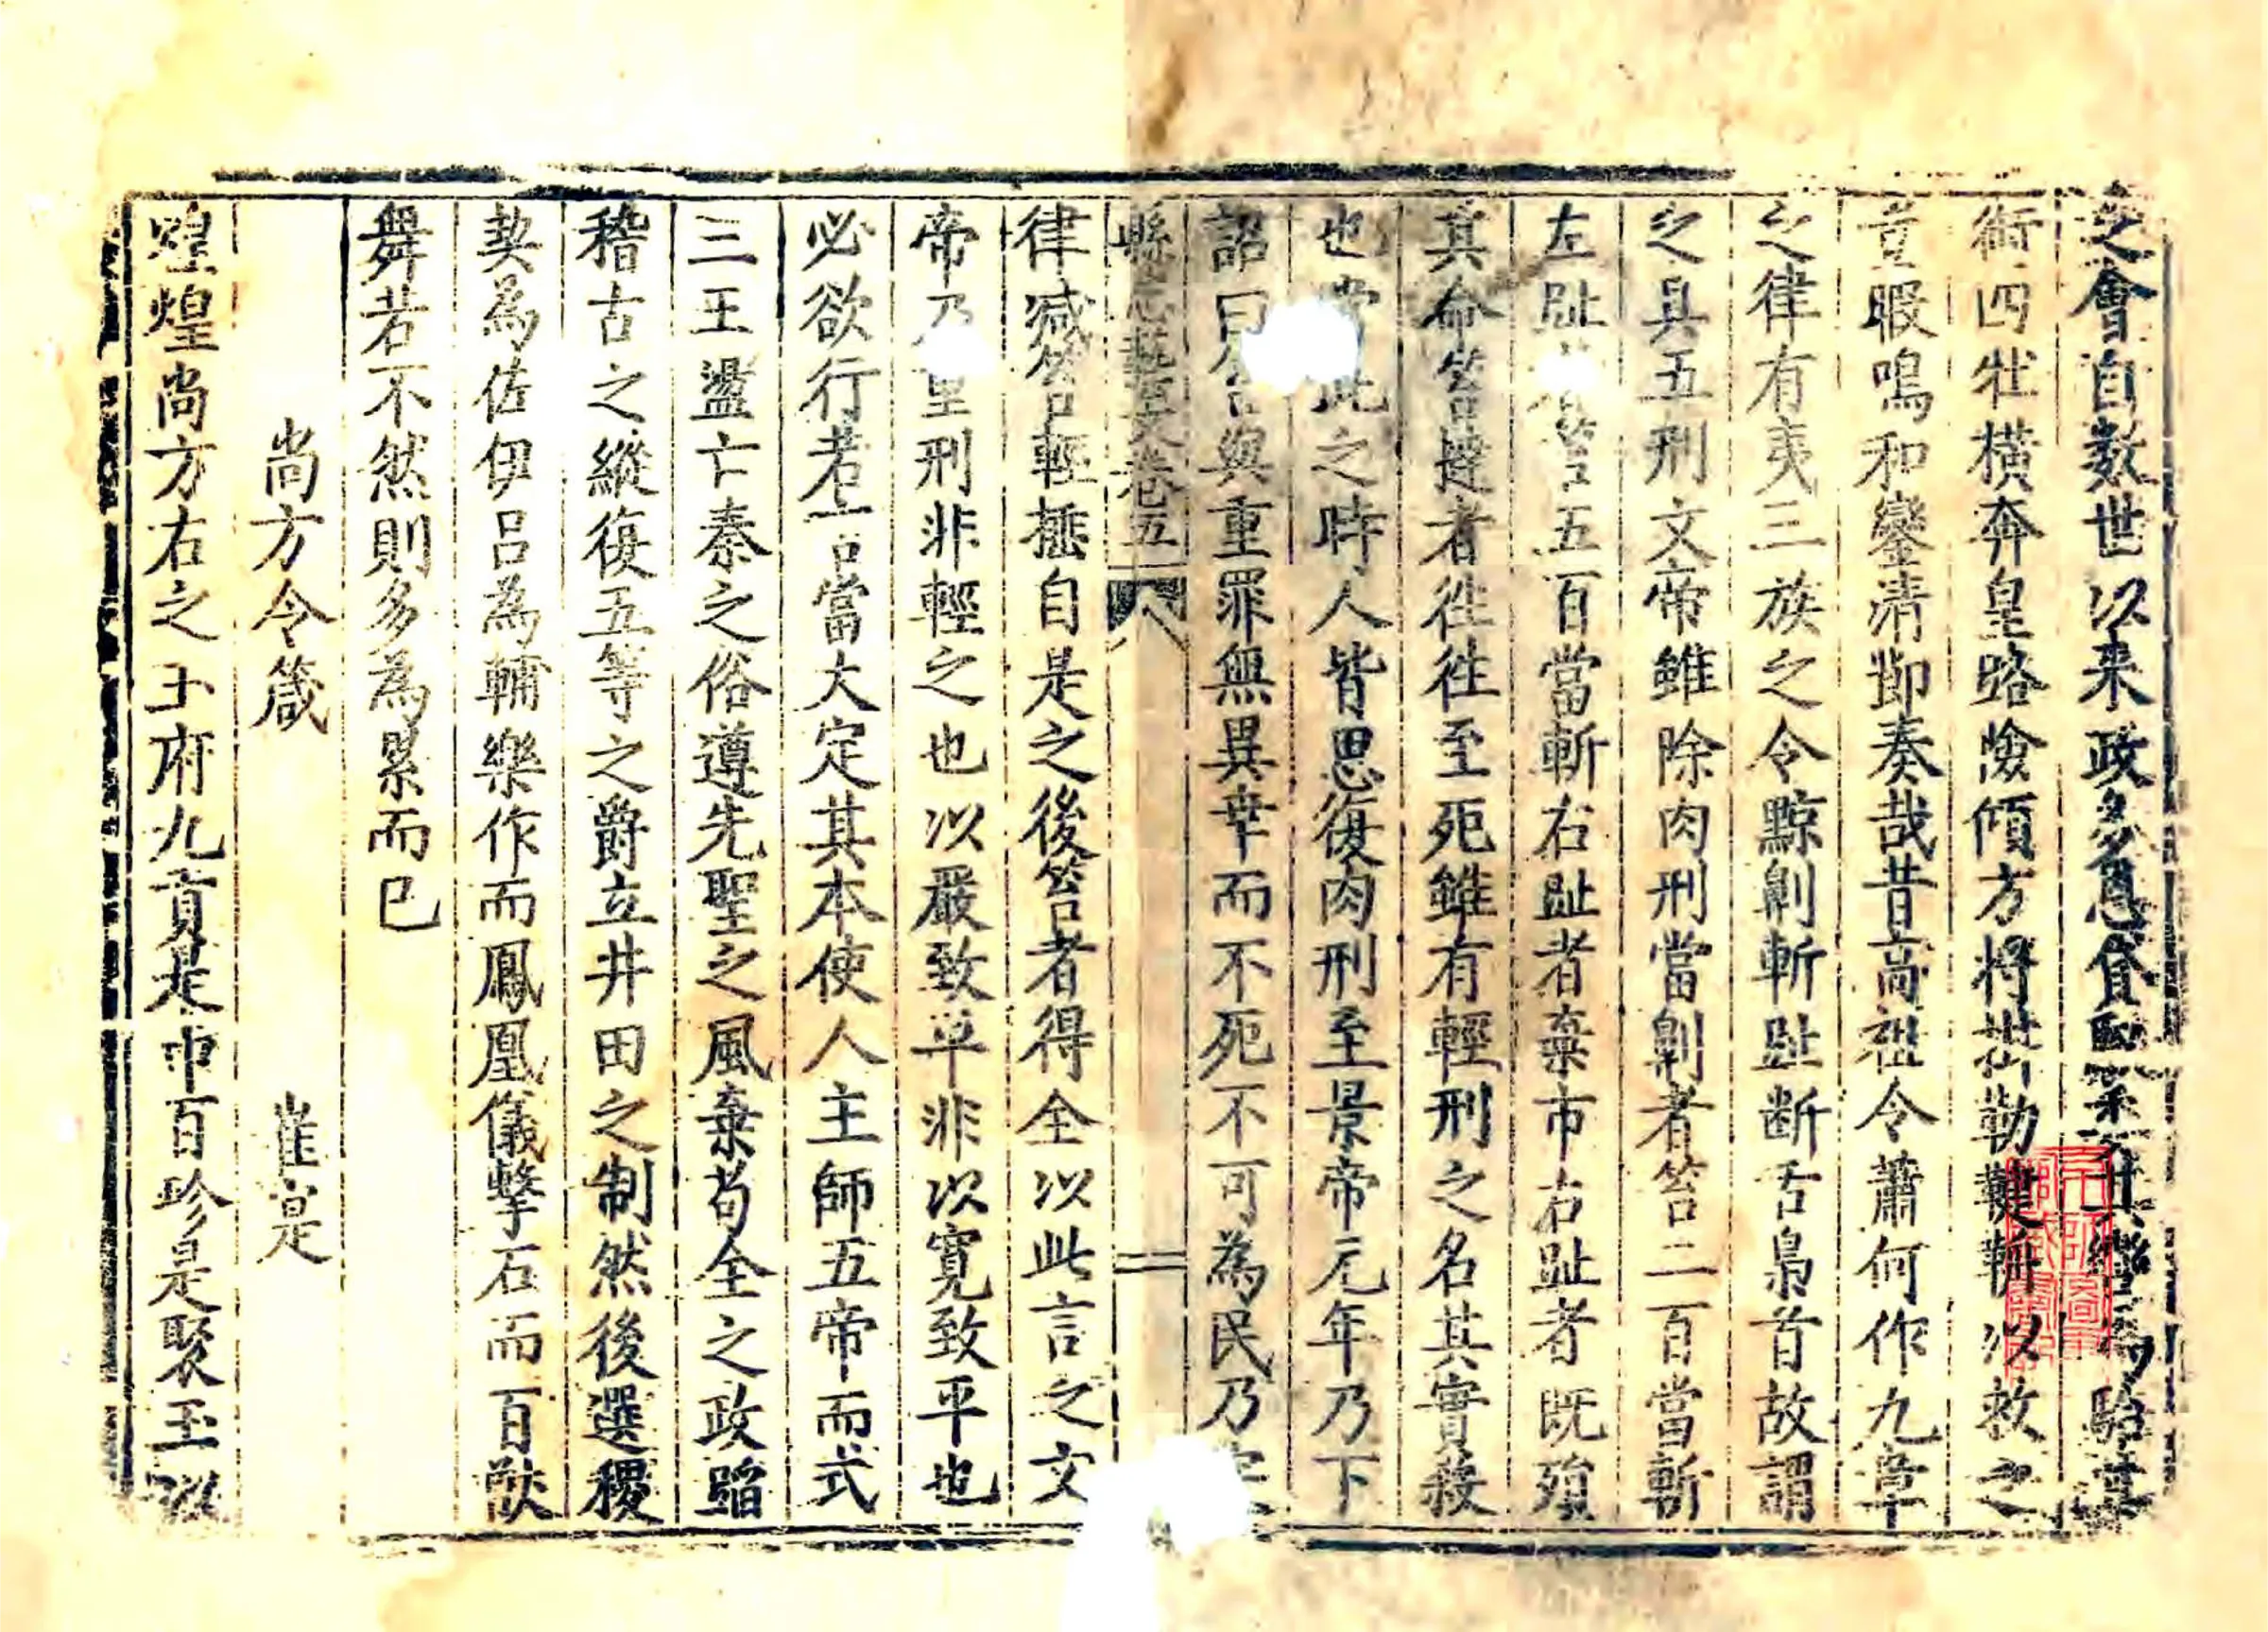 之會自數世以来政多恩貸馭委其轡馬駘其
銜四牡橫奔皇路險傾方將拑勒鞬輈以救之
豈暇鳴和鑾清節奏哉昔高祖令蕭何作九章
之律有夷三族之令黥劓斬趾断舌梟首故謂
之具五刑文帝雖除肉刑當劓者笞三百當斬
左趾笞五百當斬右趾者棄市右趾者既殞
其命笞撻者徃徃至死雖有輕刑之名其實殺
也當此之時人皆思復肉刑至景帝元年乃下
詔曰笞與重罪無異幸而不死不可為民乃定
縣志藝文卷五
律減笞輕捶自是之後笞者得全以此言之文
帝乃重刑非輕之也以嚴致平非以寛致平也
必欲行若言當大定其本使人主師五帝而式
三王盪亡秦之俗遵先聖之風棄苟全之政蹈
稽古之縱復五等之爵立井田之制然後選稷
契為佐伊呂為輔樂作而鳳凰儀擊石而百獸
舞若不然則多為累而已
尚方令箴 崔寔
煌煌尚方右之王府九貢是中百珍是聚玉